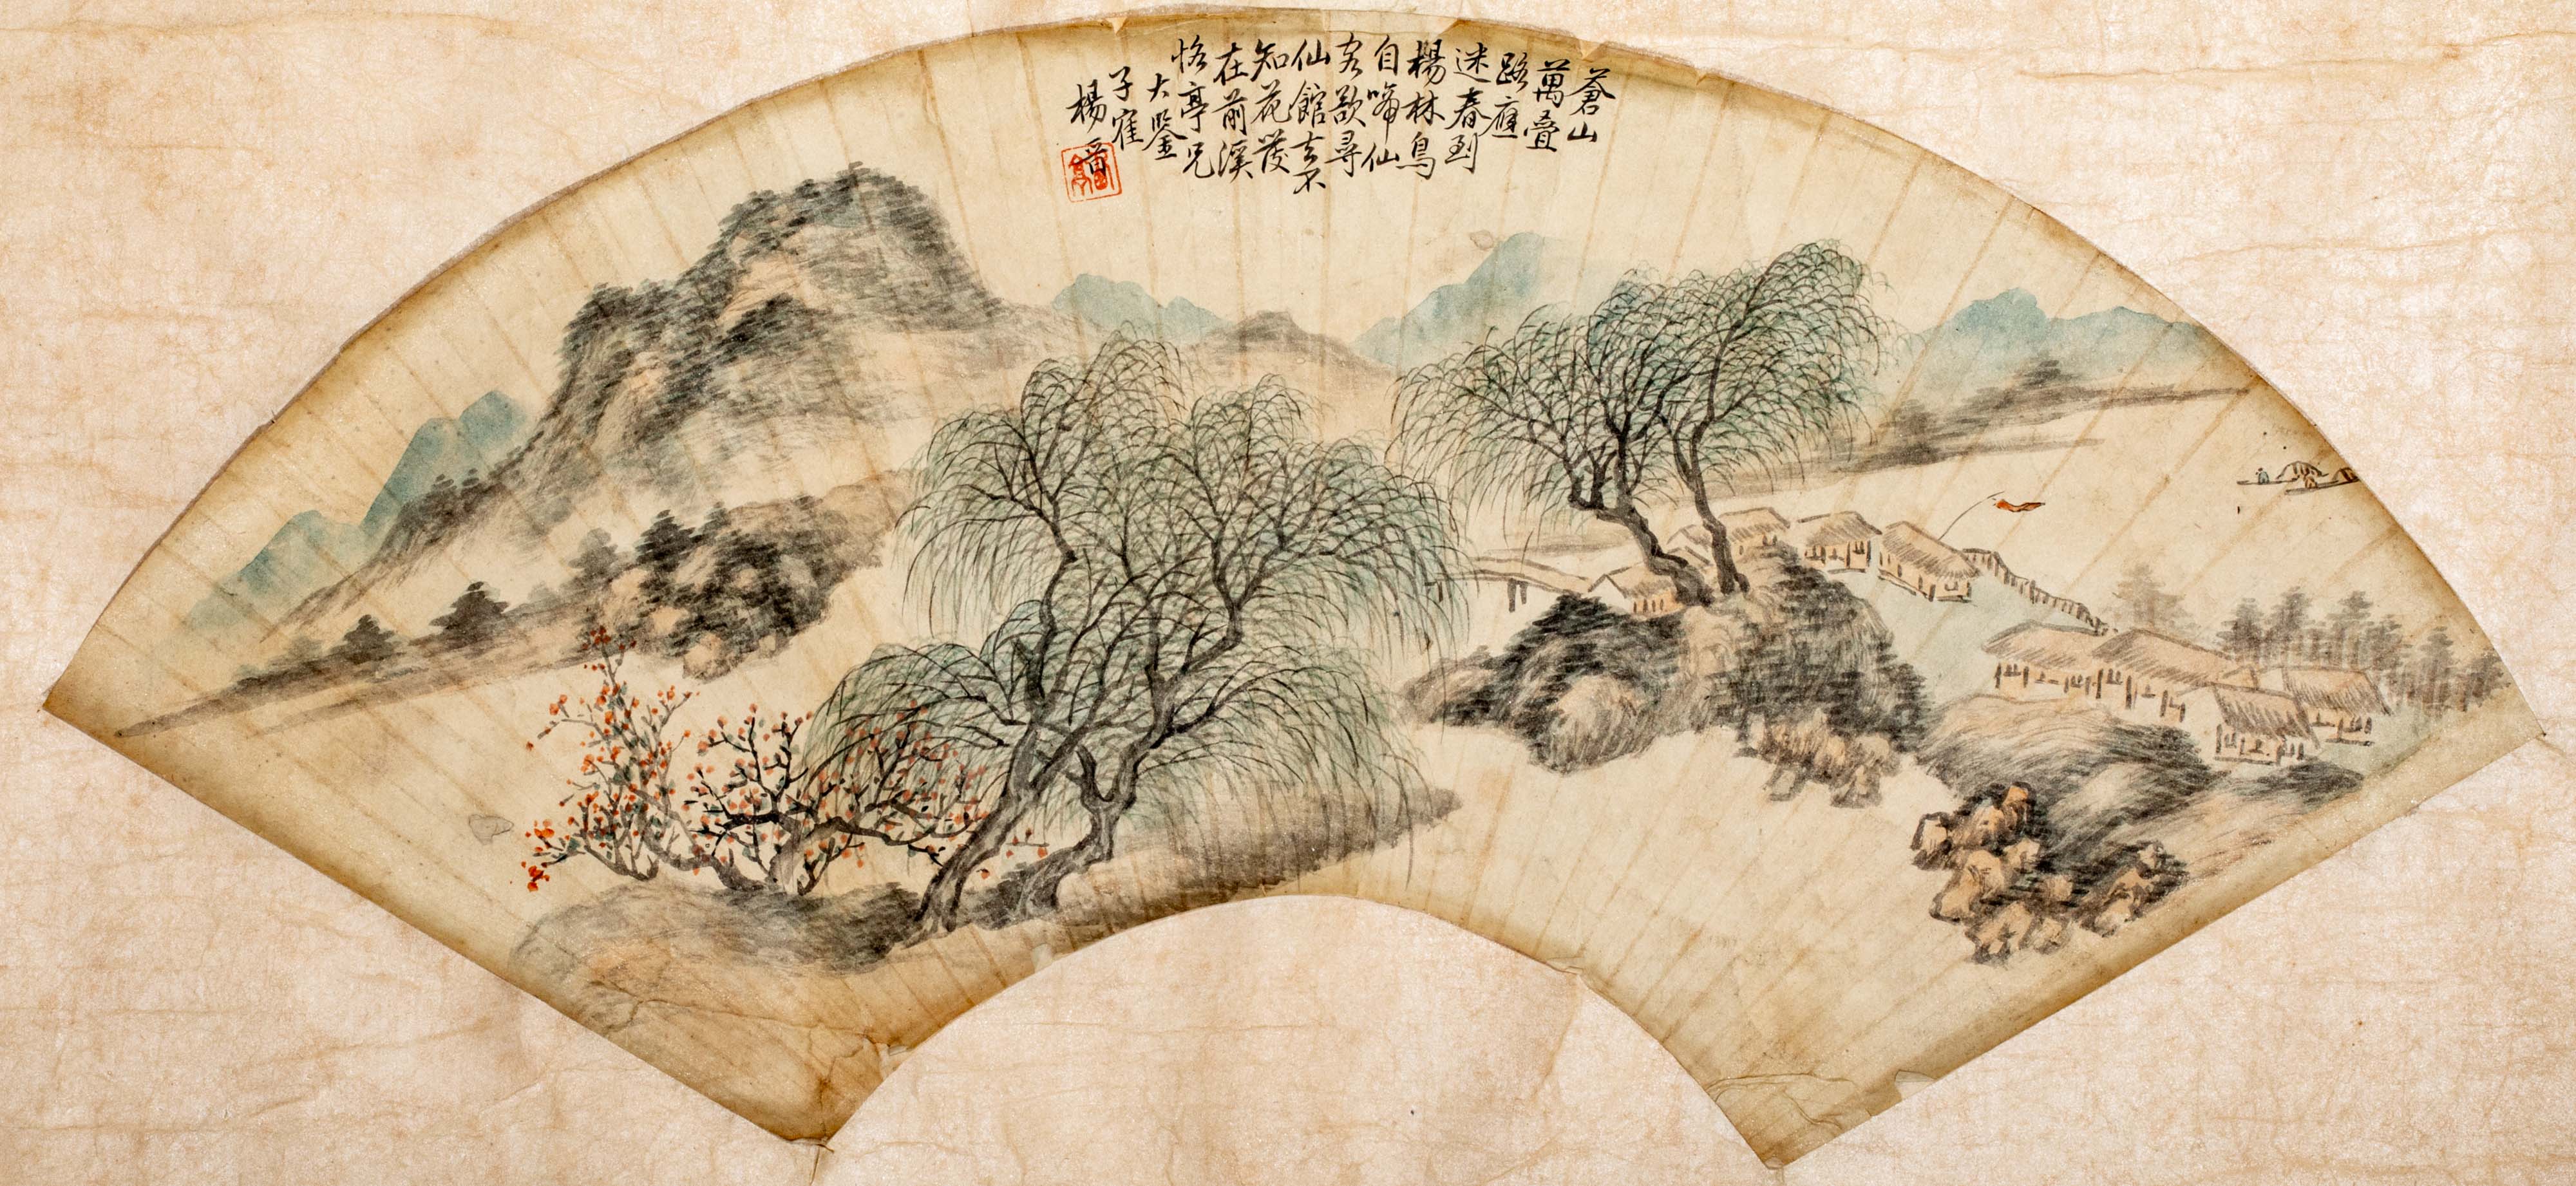 蒼山
萬疊
路應
迷春到
楊林鳥
自啼仙
客欲尋
仙館去不
知花發
在前溪
恪亭兄
大鑒
子寉
楊晉